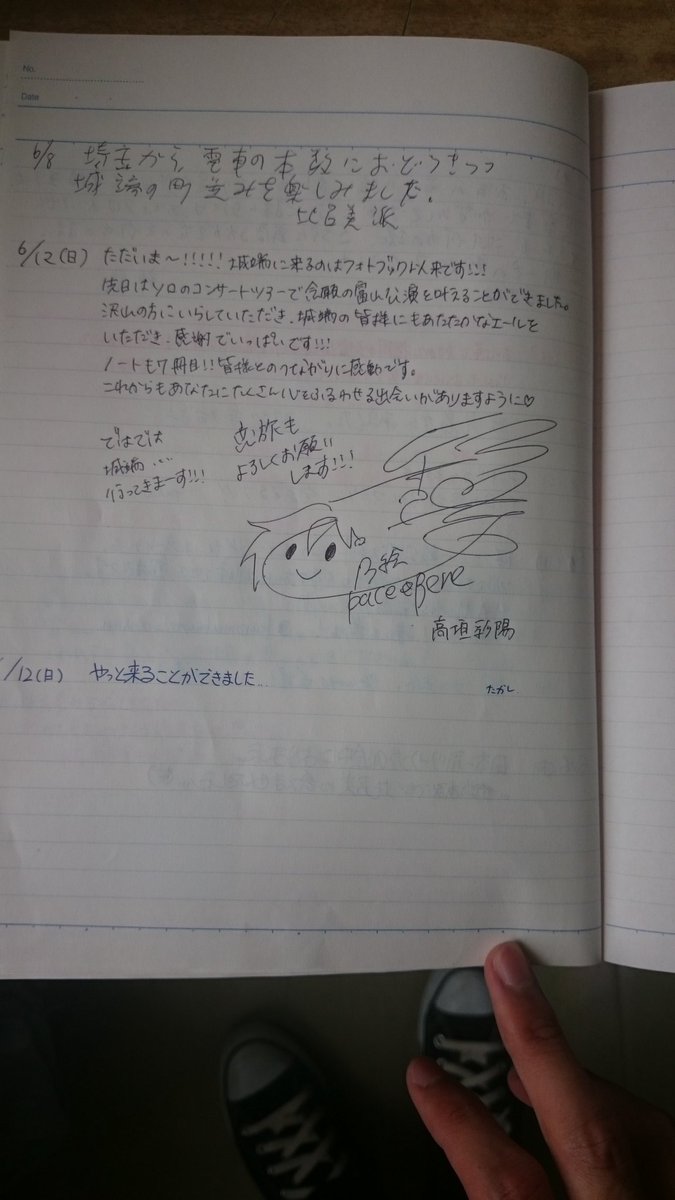 No.
Date
6/8 埼玉から、電車の本数におどろきつつ
城端の町並みを楽しみました。
6/12(日) ただいま〜!!!!! 城端に来るのはフォトブック以来です!!!
先日はソロのコンサートツアーで念願の富山公演を叶えることができました。
沢山の方にいらしていただき、城端の皆様にもあたたかなエールを
いただき、感謝でいっぱいです!!!
ノートも7冊目!! 皆様とのつながりに感動です。
これからもあなたにたくさん心をふるわせる出会いがありますように♡
ではでは
城端…
行ってきまーす!!!
恋旅も
よろしくお願い
します!!!
乃絵
pace e bene
高垣彩陽
/12(日) やっと来ることができました…
たかし